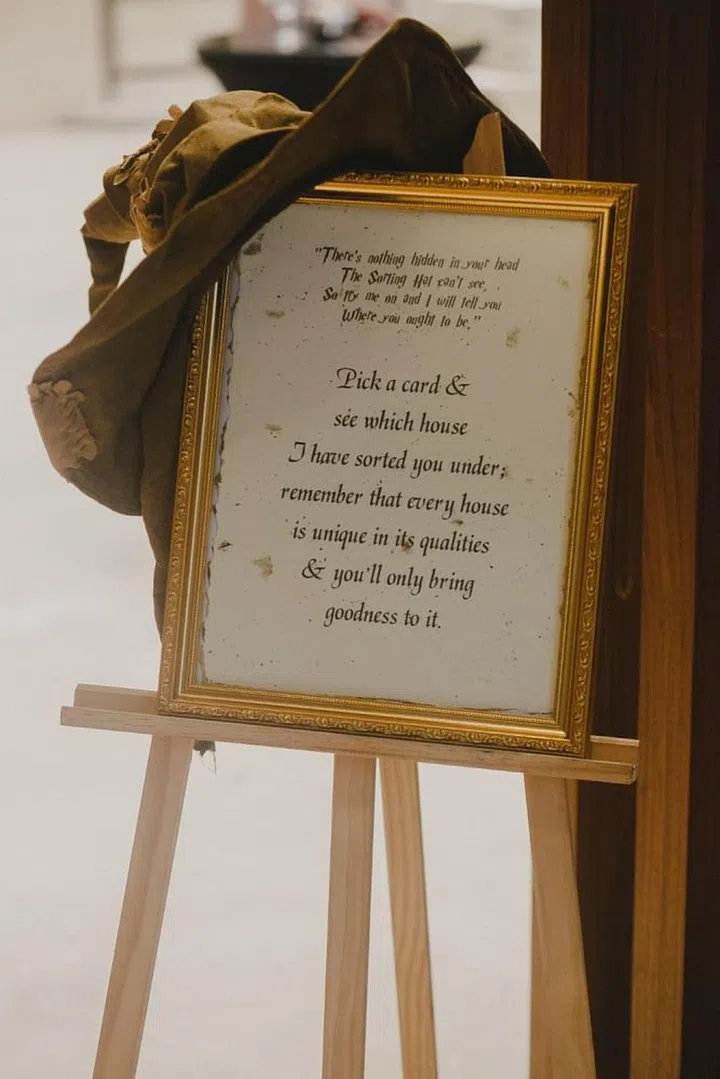 "There's nothing hidden in your head
The Sorting Hat can't see,
So try me on and I will tell you
Where you ought to be,"
Pick a card &
see which house
I have sorted you under;
remember that every house
is unique in its qualities
& you'll only bring
goodness to it.